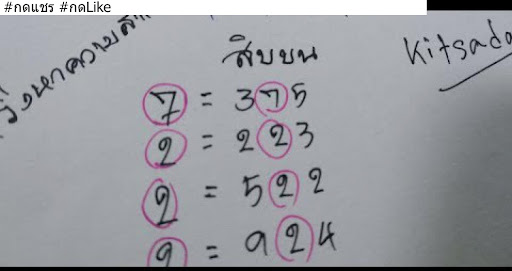 #กดแชร #กดLike
สิบบน
Kitsada
7 = 375
2 = 223
2 = 522
2 = 924